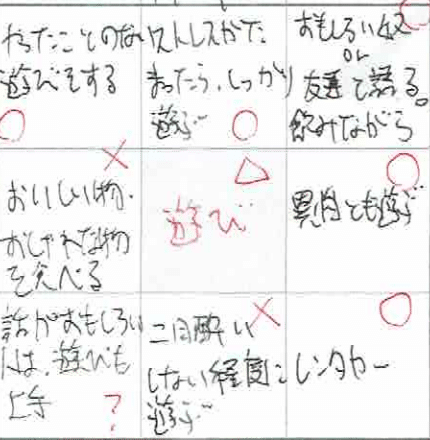 やったことのない
遊びをする
ストレスがた
まったら、しっかり
遊ぶ
おもしろい奴
or
友達と語る。
飲みながら
おいしい物・
おしゃれな物
を食べる
遊び
異性とも遊ぶ
話がおもしろい
人は、遊びも
上手
?
二日酔い
しない程度に
遊ぶ
レンタカー